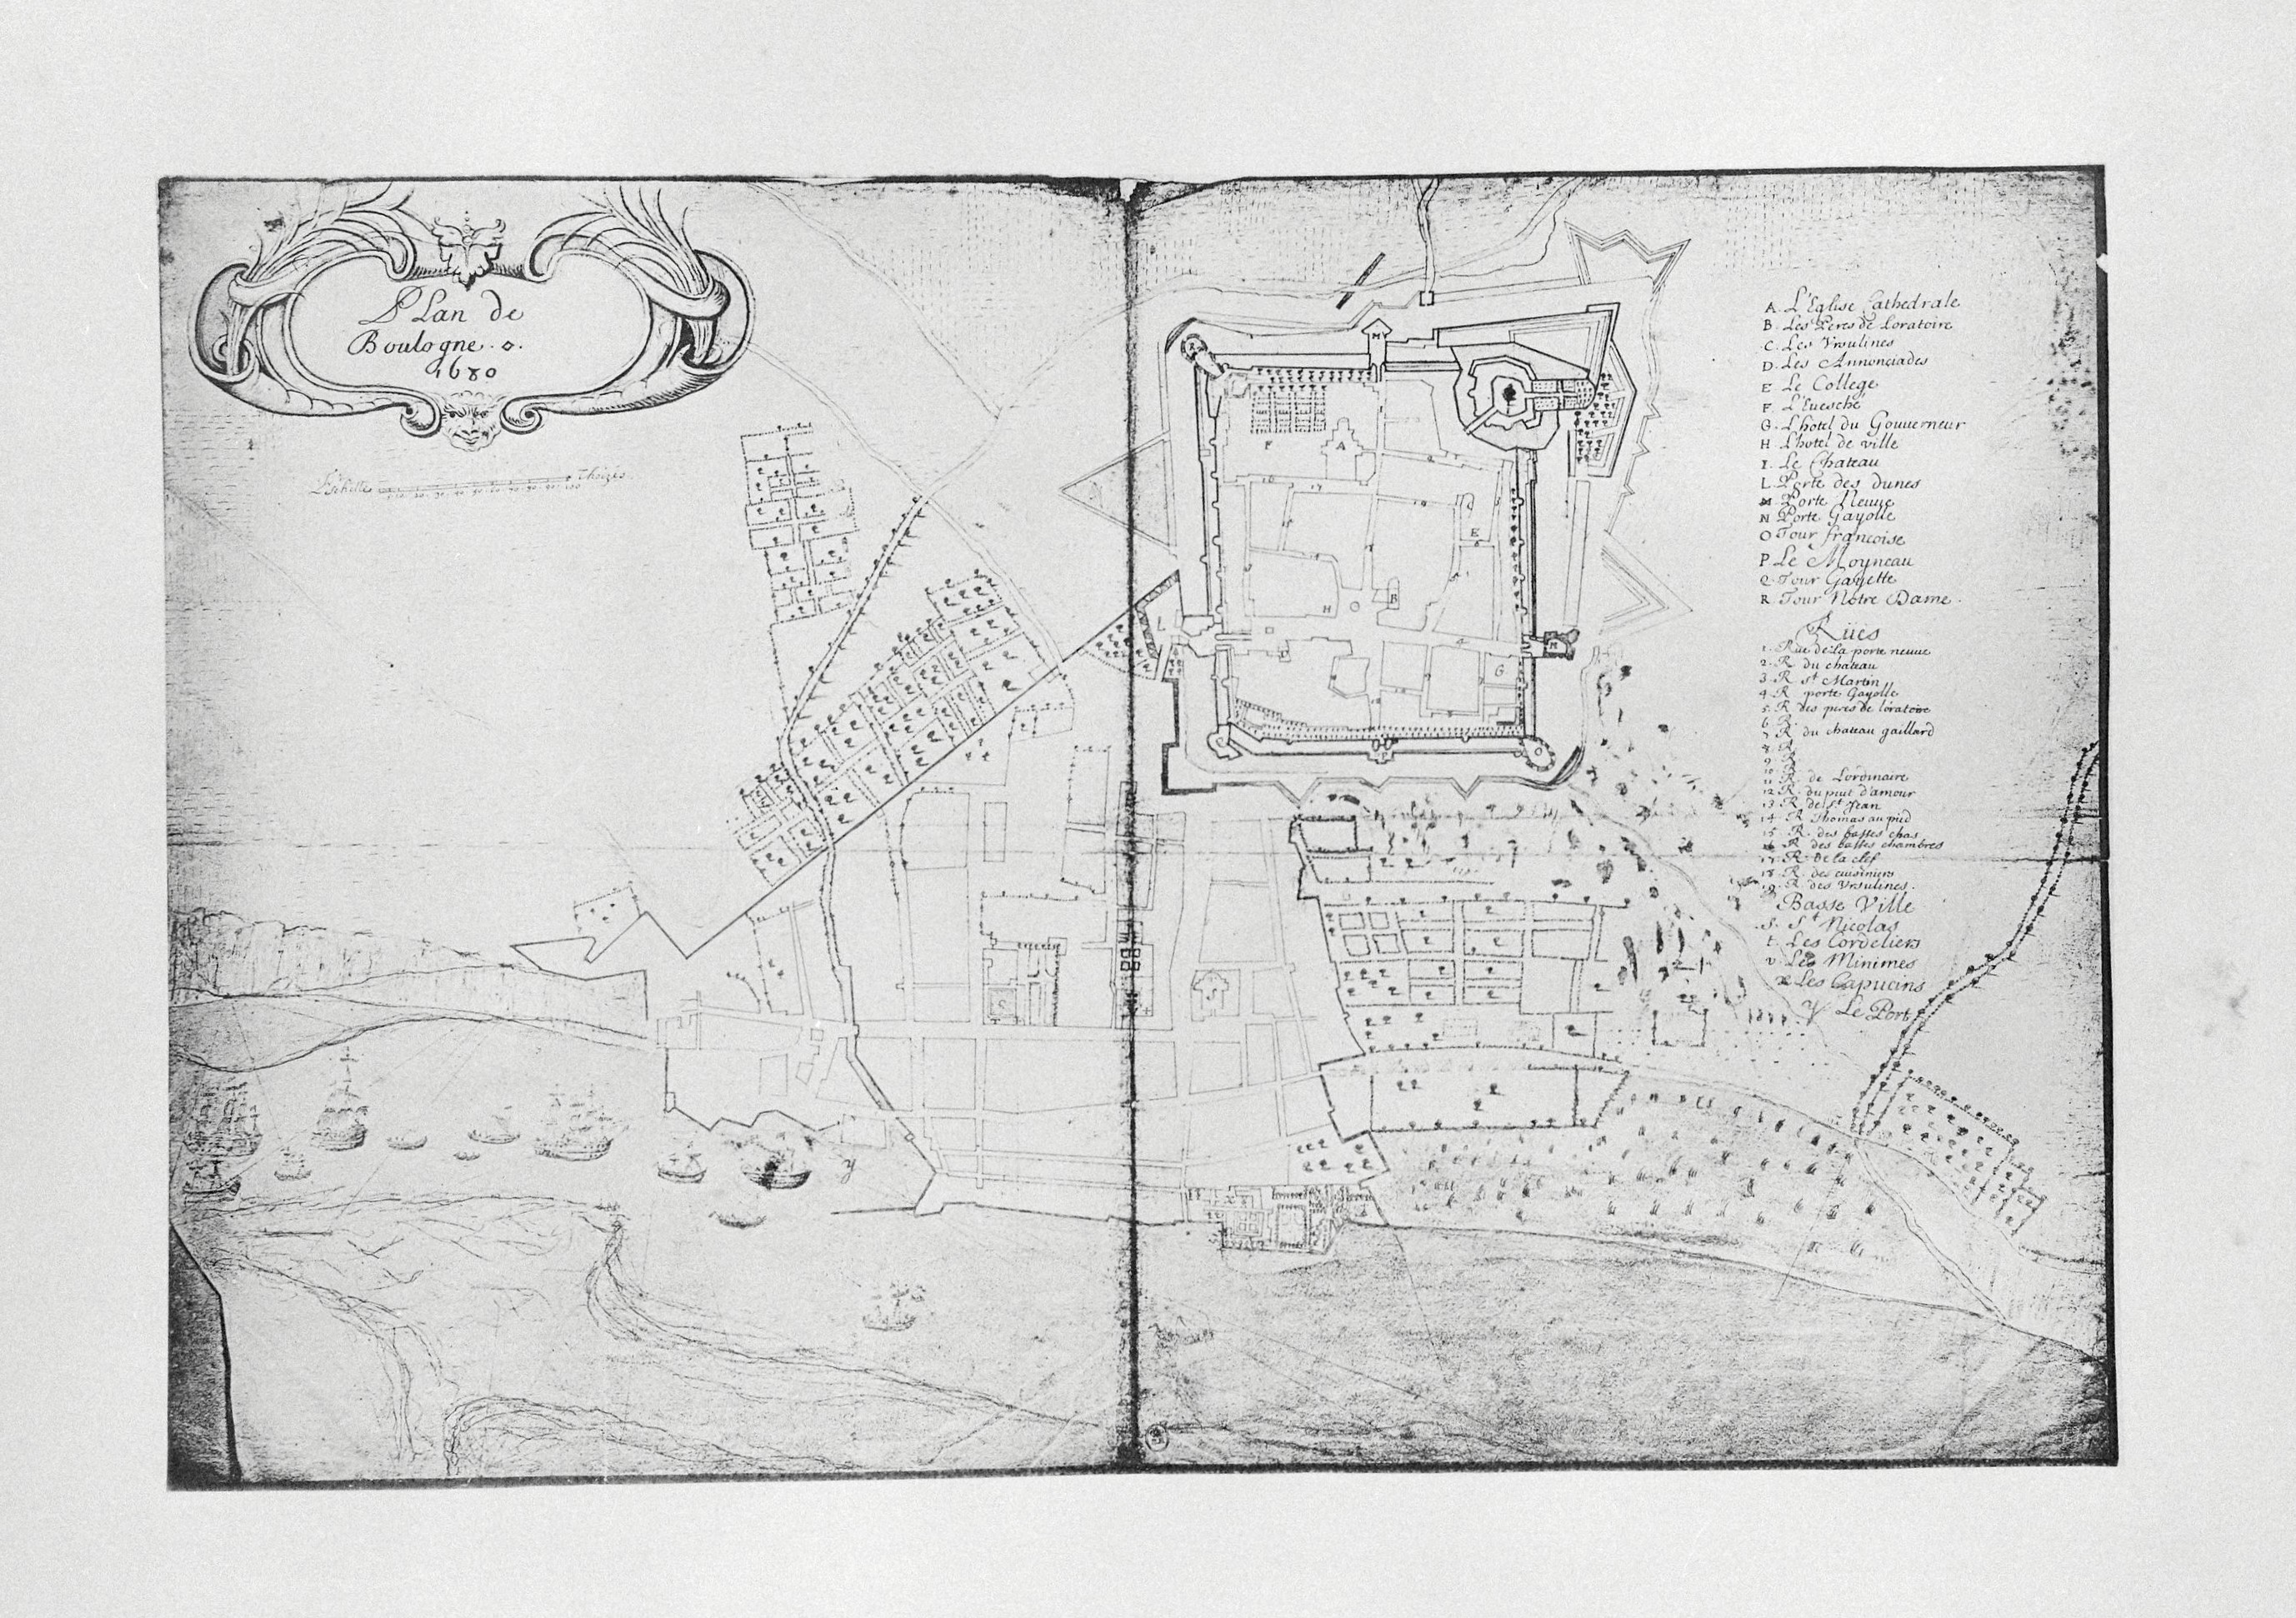 PLan de
Boulogne.
1680
Thoizes.
A. L'Eglise Cathedrale
B. Les Peres de Loratoire
C. Les Vrsulines
D. Les Annonciades
E Le College
F. L'Euesché
G. L'hotel du Gouuerneur
H L'hotel de ville
I. Le Chateau
L. Porte des dunes
M Porte Neuue
N Porte Gayolle
O Tour francoise
P Le Moyneau
Q Tour Gayette
R. Tour Notre Dame.
Rües
1. Rue de la porte neuue
2. R du chateau
3. R St Martin
4 R porte Gayolle
5. R des peres de loratoire
6 R.
7 R du chateau gaillard
8 R
9 R
10 R
11 R. de Lordinaire
12 R. du puit d'amour
13 R de St Jean
14 R Thomas au pied
15 R. des basses chas
16 R des basses chambres
17 R de la clef
18 R. des cuisiniers
19 R des Vrsulines.
Basse Ville
S. St Nicolas
t. Les Cordeliers
v. Les Minimes
x Les Capucins
y Le Port
M
R
A
F
E
B
H
L
N
G
O
S
y